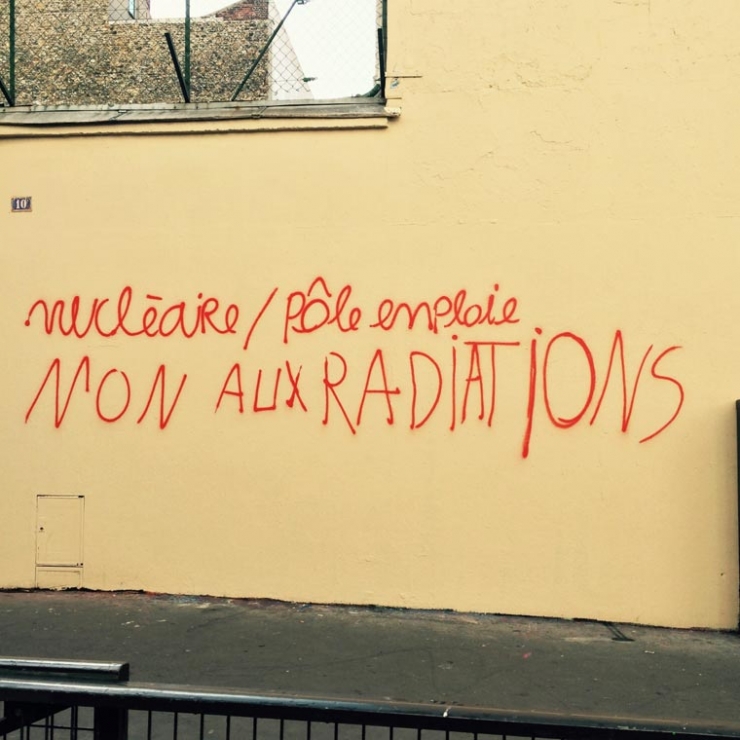 10
nucléaire / pôle emploie
NON AUX RADIATIONS